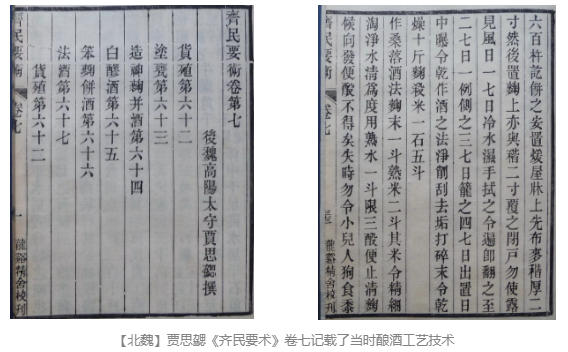 齊民要術卷第七
後魏高陽太守賈思勰撰
貨殖第六十二
塗甕第六十三
造神麴并酒第六十四
白醪酒第六十五
笨麴餅酒第六十六
法酒第六十七
貨殖第六十二
齊民要術 卷七 一 龍谿精舍校刊
六百杵訖餅之安置煖屋牀上先布麥稭厚二
寸然後置麴上亦與稭二寸覆之閉戶勿使露
見風日一七日冷水濕手拭之令遍即翻之至
二七日一例側之三七日籠之四七日出置日
中曝令乾作酒之法淨削刮去垢打碎末令乾
燥十斤麴殺米一石五斗
作桑落酒法麴末一斗熟米二斗其米令精細
淘淨水清爲度用熟水一斗限三酘便止清麴
候向發便酘不得矣失時勿令小兒人狗食黍
齊民要術 卷七 龍谿精舍校刊
【北魏】贾思勰《齐民要术》卷七记载了当时酿酒工艺技术